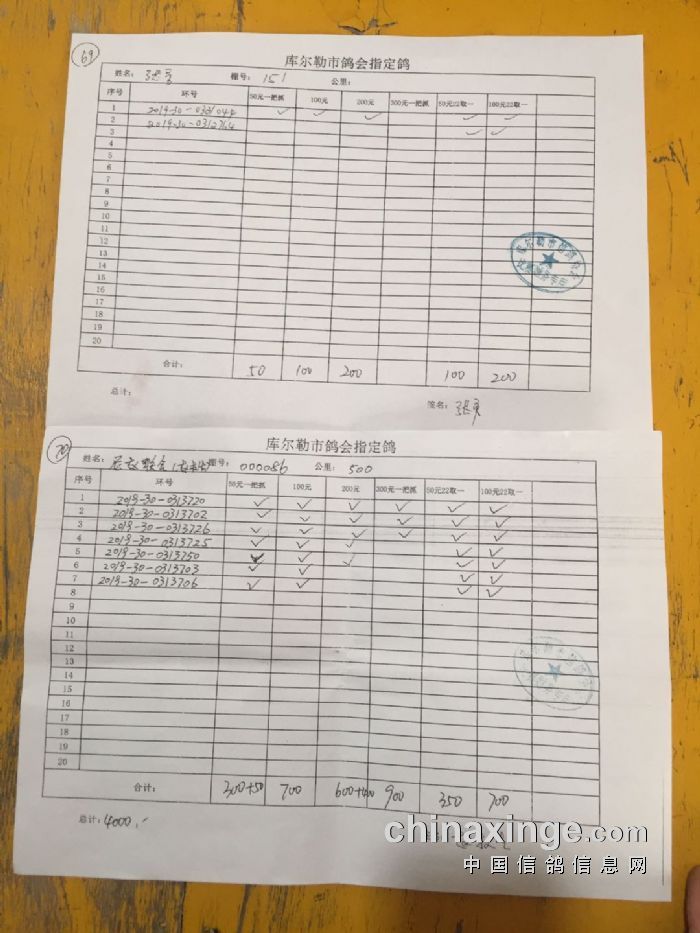 69
库尔勒市鸽会指定鸽
姓名： 棚号： 151 公里：
序号 环号 50元一把抓 100元 200元 300元一把抓 50元22取一 100元22取一
1 ✓ ✓ ✓ ✓
2 2019-30-0312764 ✓ ✓
3
4
5
6
7
8
9
10
11
12
13
14
15
16
17
18
19
20
合计： 50 100 200 100 200
总计：
签名：
70
库尔勒市鸽会指定鸽
姓名： 棚号： 000086 公里： 500
序号 环号 50元一把抓 100元 200元 300元一把抓 50元22取一 100元22取一
1 2019-30-0313720 ✓ ✓ ✓ ✓ ✓ ✓
2 2019-30-0313702 ✓ ✓ ✓ ✓ ✓ ✓
3 2019-30-0313726 ✓ ✓ ✓ ✓ ✓ ✓
4 2019-30-0313725 ✓ ✓ ✓ ✓ ✓
5 2019-30-0313750 ✓ ✓ ✓ ✓ ✓
6 2019-30-0313703 ✓ ✓ ✓ ✓
7 2019-30-0313706 ✓ ✓ ✓ ✓
8
9
10
11
12
13
14
15
16
17
18
19
20
合计： 300+50 700 600+400 900 350 700
总计： 4000
chinaxinge.com
中国信鸽信息网